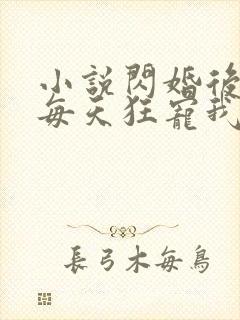 小說閃婚後
每天狂寵我
長弓木每鳥